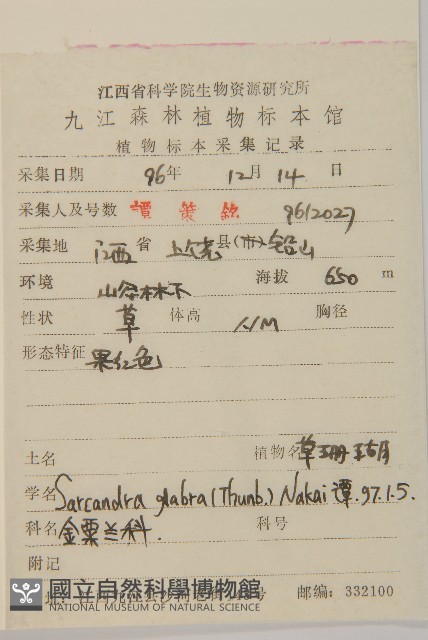 江西省科学院生物资源研究所
九江森林植物标本馆
植物标本采集记录
采集日期 96年 12月 14 日
采集人及号数 譚策銘 9612027
采集地 江西省 上饶县(市) 铅山
环境 山谷林下 海拔 650 m
性状 草 体高 1M 胸径
形态特征 果红色
土名 植物名 草珊瑚
学名 Sarcandra glabra (Thunb.) Nakai 谭.97.1.5.
科名 金粟兰科. 科号
附记
國立自然科學博物館
NATIONAL MUSEUM OF NATURAL SCIENCE
号 邮编: 332100